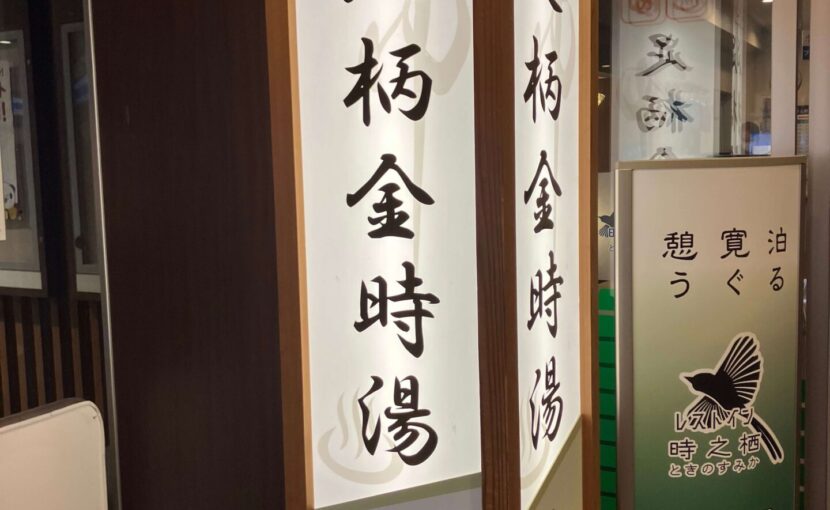 柄金時湯
柄金時湯
憩寛泊
うぐる
レストイン
時之栖
ときのすみか